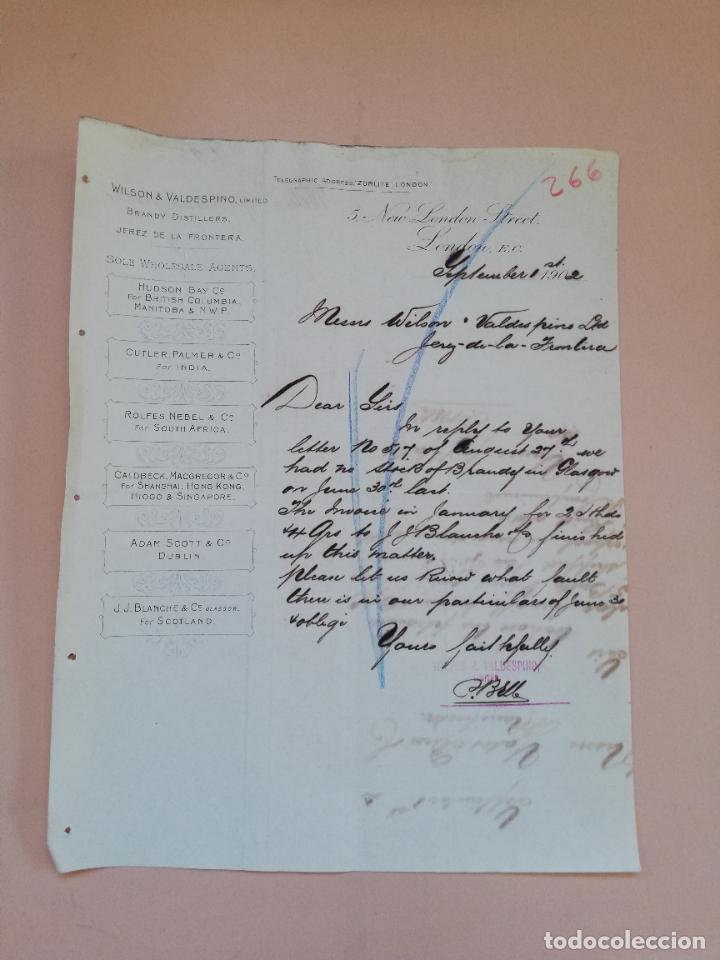 TELEGRAPHIC ADDRESS, "ZURLITE LONDON"
266
WILSON & VALDESPINO, LIMITED
BRANDY DISTILLERS,
JEREZ DE LA FRONTERA.
SOLE WHOLESALE AGENTS.
HUDSON BAY Co
FOR BRITISH COLUMBIA,
MANITOBA & N.W.P.
CUTLER, PALMER & Co
FOR INDIA.
ROLFES, NEBEL & Co
FOR SOUTH AFRICA.
CALDBECK, MACGREGOR & Co
FOR SHANGHAI, HONG KONG,
HIOGO & SINGAPORE.
ADAM SCOTT & Co
DUBLIN.
J.J. BLANCHE & Co GLASGOW.
FOR SCOTLAND.
5, New London Street,
London, E.C.
September 1st 1902
Messrs Wilson & Valdespino Ltd
Jerez-de-la-Frontera
Dear Sirs
In reply to your
letter No 517 of August 27th we
had no stock of Brandy in Glasgow
on June 30th last.
The Invoice in January for
& 4 Qrs to J J Blanche & Co finished
up this matter.
Please let us know what fault
there is in our particulars of June 30
& oblige
Yours faithfully
& VALDESPINO,
todocoleccion
todocoleccion.net